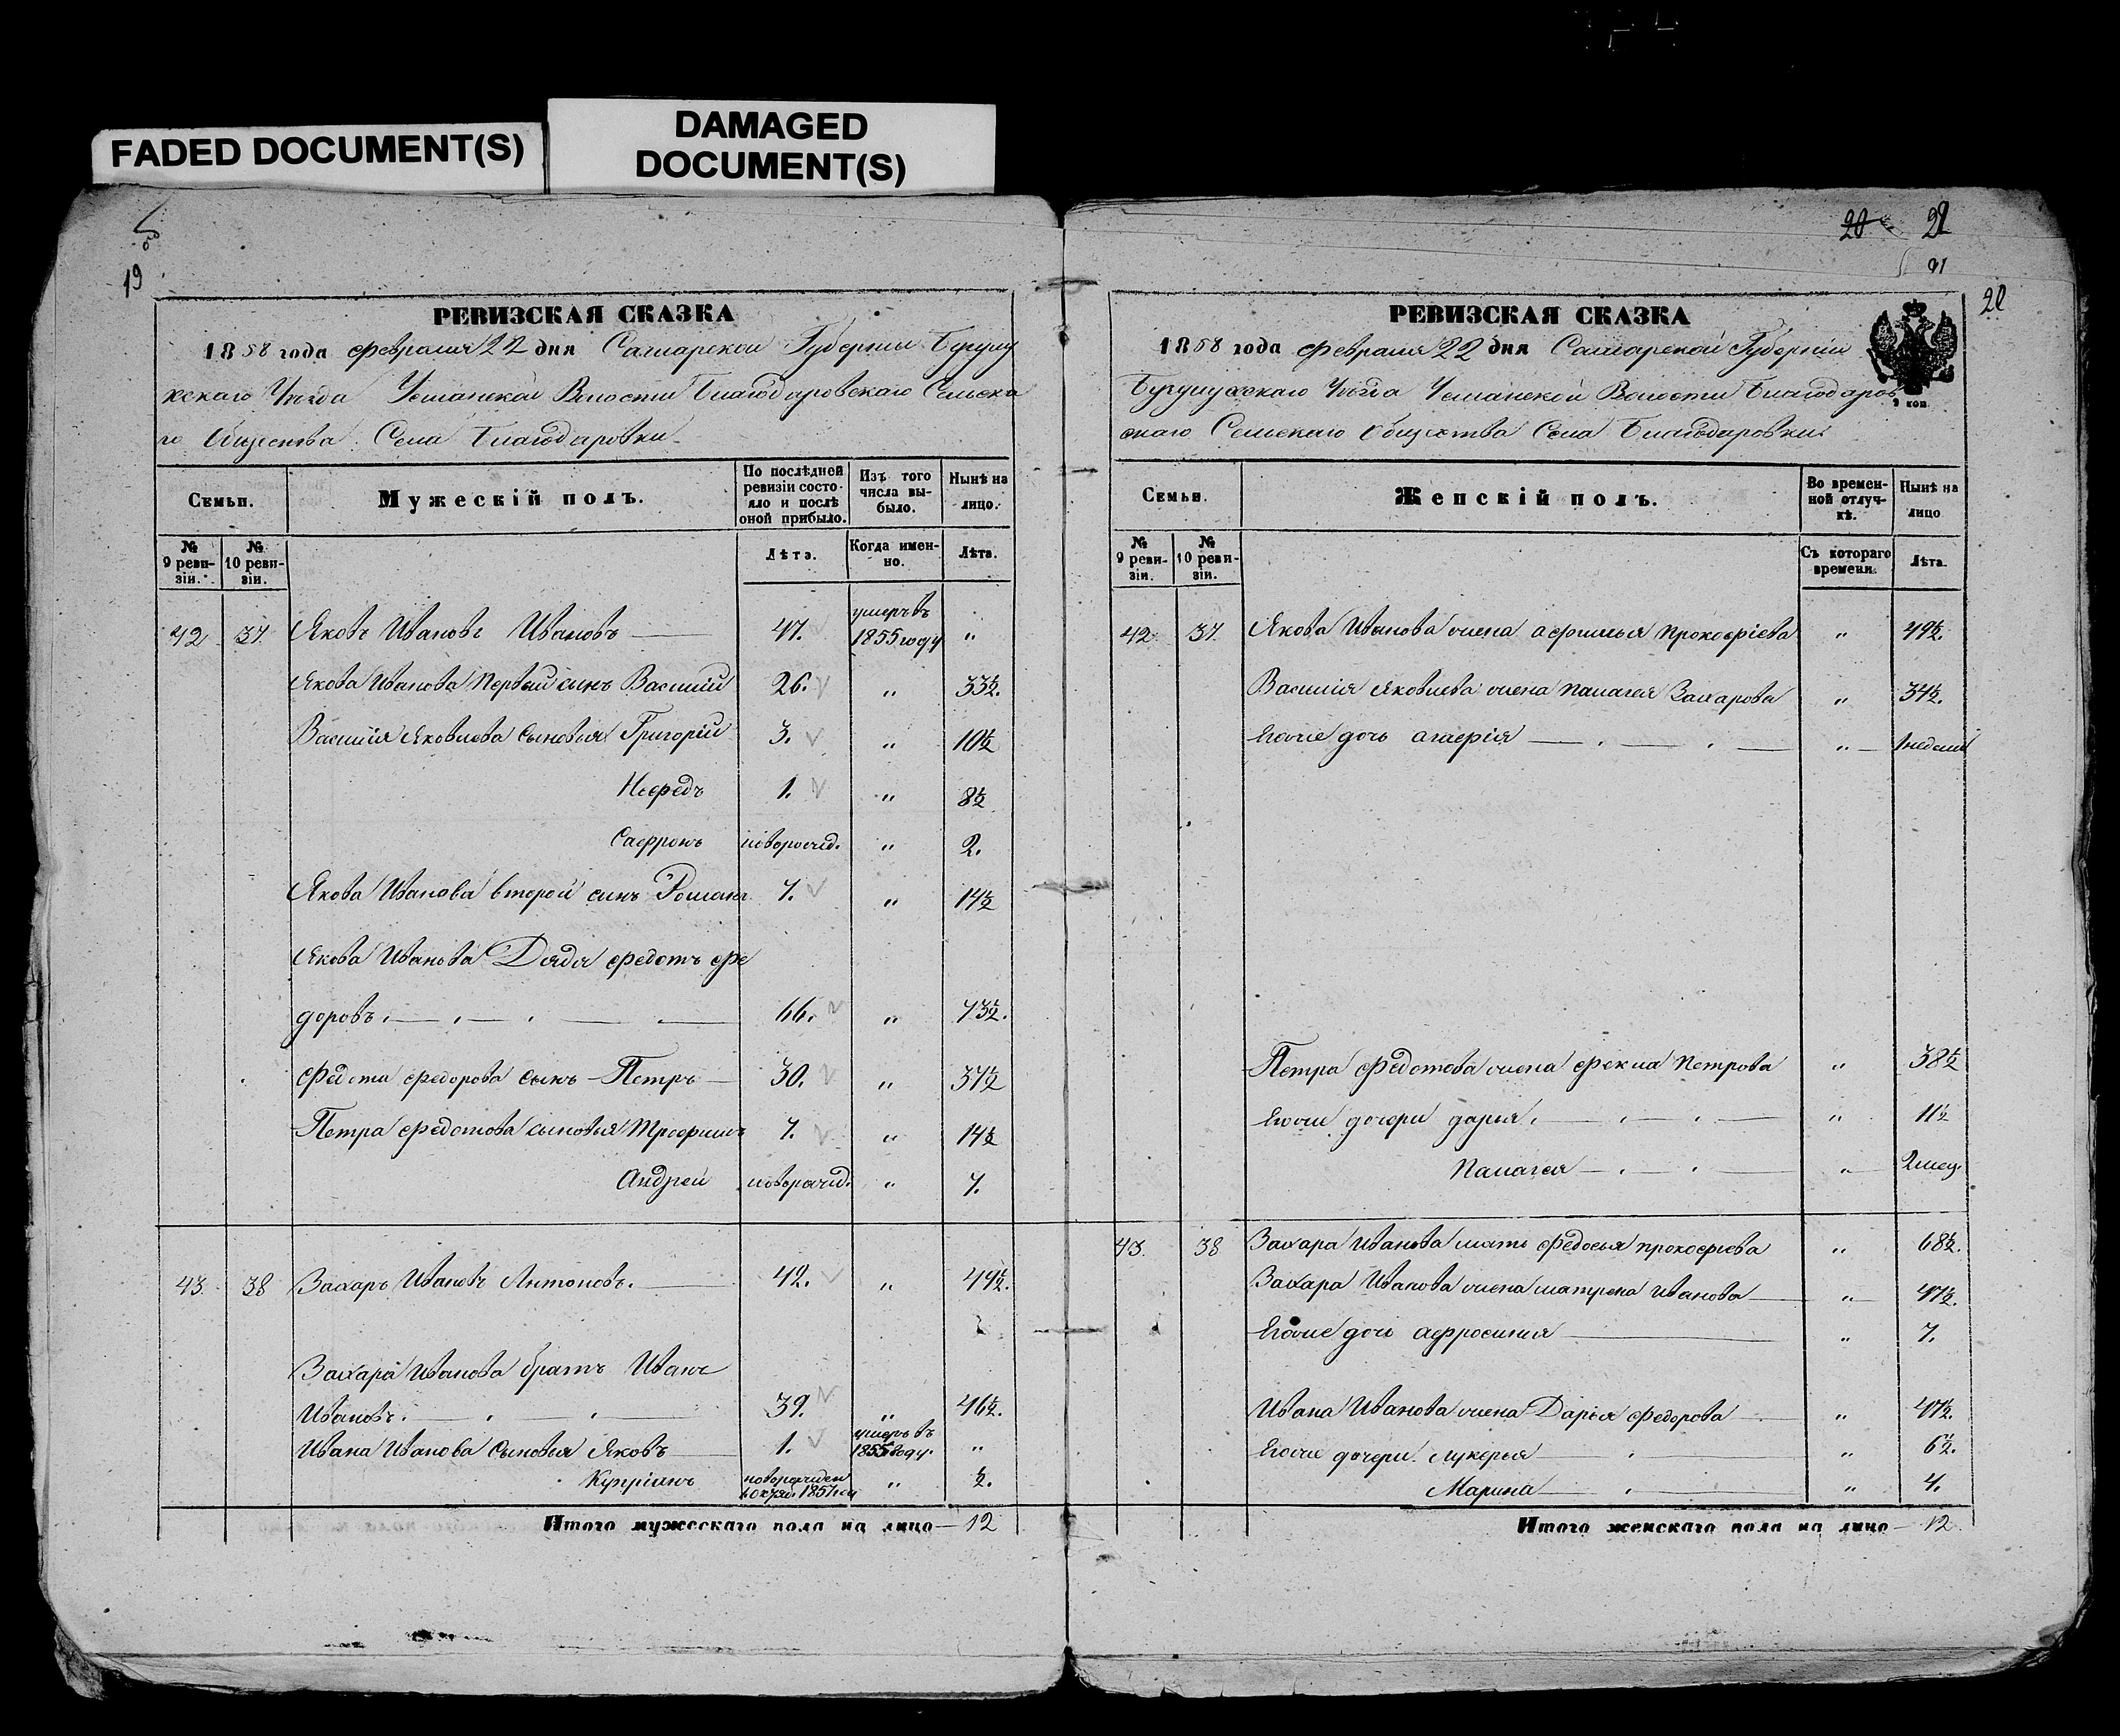 FADED DOCUMENT(S)
DAMAGED
DOCUMENT(S)
19
РЕВИЗСКАЯ СКАЗКА
1858 года февраля 22 дня Самарской Губернии Бугуру
Уѣзда Волости Благодаровскаго Сельска
го Общества Села Благодаровки
Семьи.
Мужескій полъ.
По послѣдней ревизіи состояло и послѣ оной прибыло.
Изъ того числа выбыло.
Нынѣ на лицо.
№ 9 ревизіи.
№ 10 ревизіи.
Лѣта.
Когда именно.
Лѣта.
42 37. Яковъ Ивановъ Ивановъ 47. умеръ въ 1855 году "
Якова Иванова Первый сынъ Василій 26. " 33½.
Василія Яковлева сыновья Григорій 3. " 10½
Нефедъ 1. " 8½
Сафронъ новорожд. " 2.
Якова Иванова второй сынъ Романъ 7. " 14½
Якова Иванова Дядя Федотъ Фе
доровъ. 66. " 73½.
Федота Федорова сынъ Петръ 30. " 37½
Петра Федотова сыновья Трофимъ 7. " 14½
Андрей новорожд. " 7.
43. 38 Захаръ Ивановъ Антоновъ. 42. " 49½.
Захара Иванова братъ Иванъ
Ивановъ. 39. " 46½.
Ивана Иванова Сыновья Яковъ 1. умеръ въ 1855 году. "
Купріанъ новорожден 1857 " ½.
Итого мужескаго пола на лицо 12
20 22
21
РЕВИЗСКАЯ СКАЗКА
1858 года февраля 22 дня Самарской Губерніи
Уѣзда Волости Благодаров
скаго Сельскаго Общества Села Благодаровки.
Семьи.
Женскій полъ.
Во временной отлучкѣ.
Нынѣ на лицо
№ 9 ревизіи.
№ 10 ревизіи.
Съ котораго времени.
Лѣта.
42 37. Якова Иванова жена Афимья Прокофіева " 49½.
Василія Яковлева жена Палагея Захарова " 34½.
Ихожие дочь " 1 недели
Петра Федотова жена Фекла Петрова " 38½
Ихожие дочери Дарья. " 11½
Палагея " 2 мец.
43. 38 Захара Иванова мать Федосья Прокофіева " 68½.
Захара Иванова жена Матрена Иванова " 47½.
Ихожие дочь Афросинья " 7.
Ивана Иванова жена Дарья Федорова " 47½.
Ихожие дочери Лукерья " 6½.
Марина " 4.
Итого женскаго пола на лицо 12.